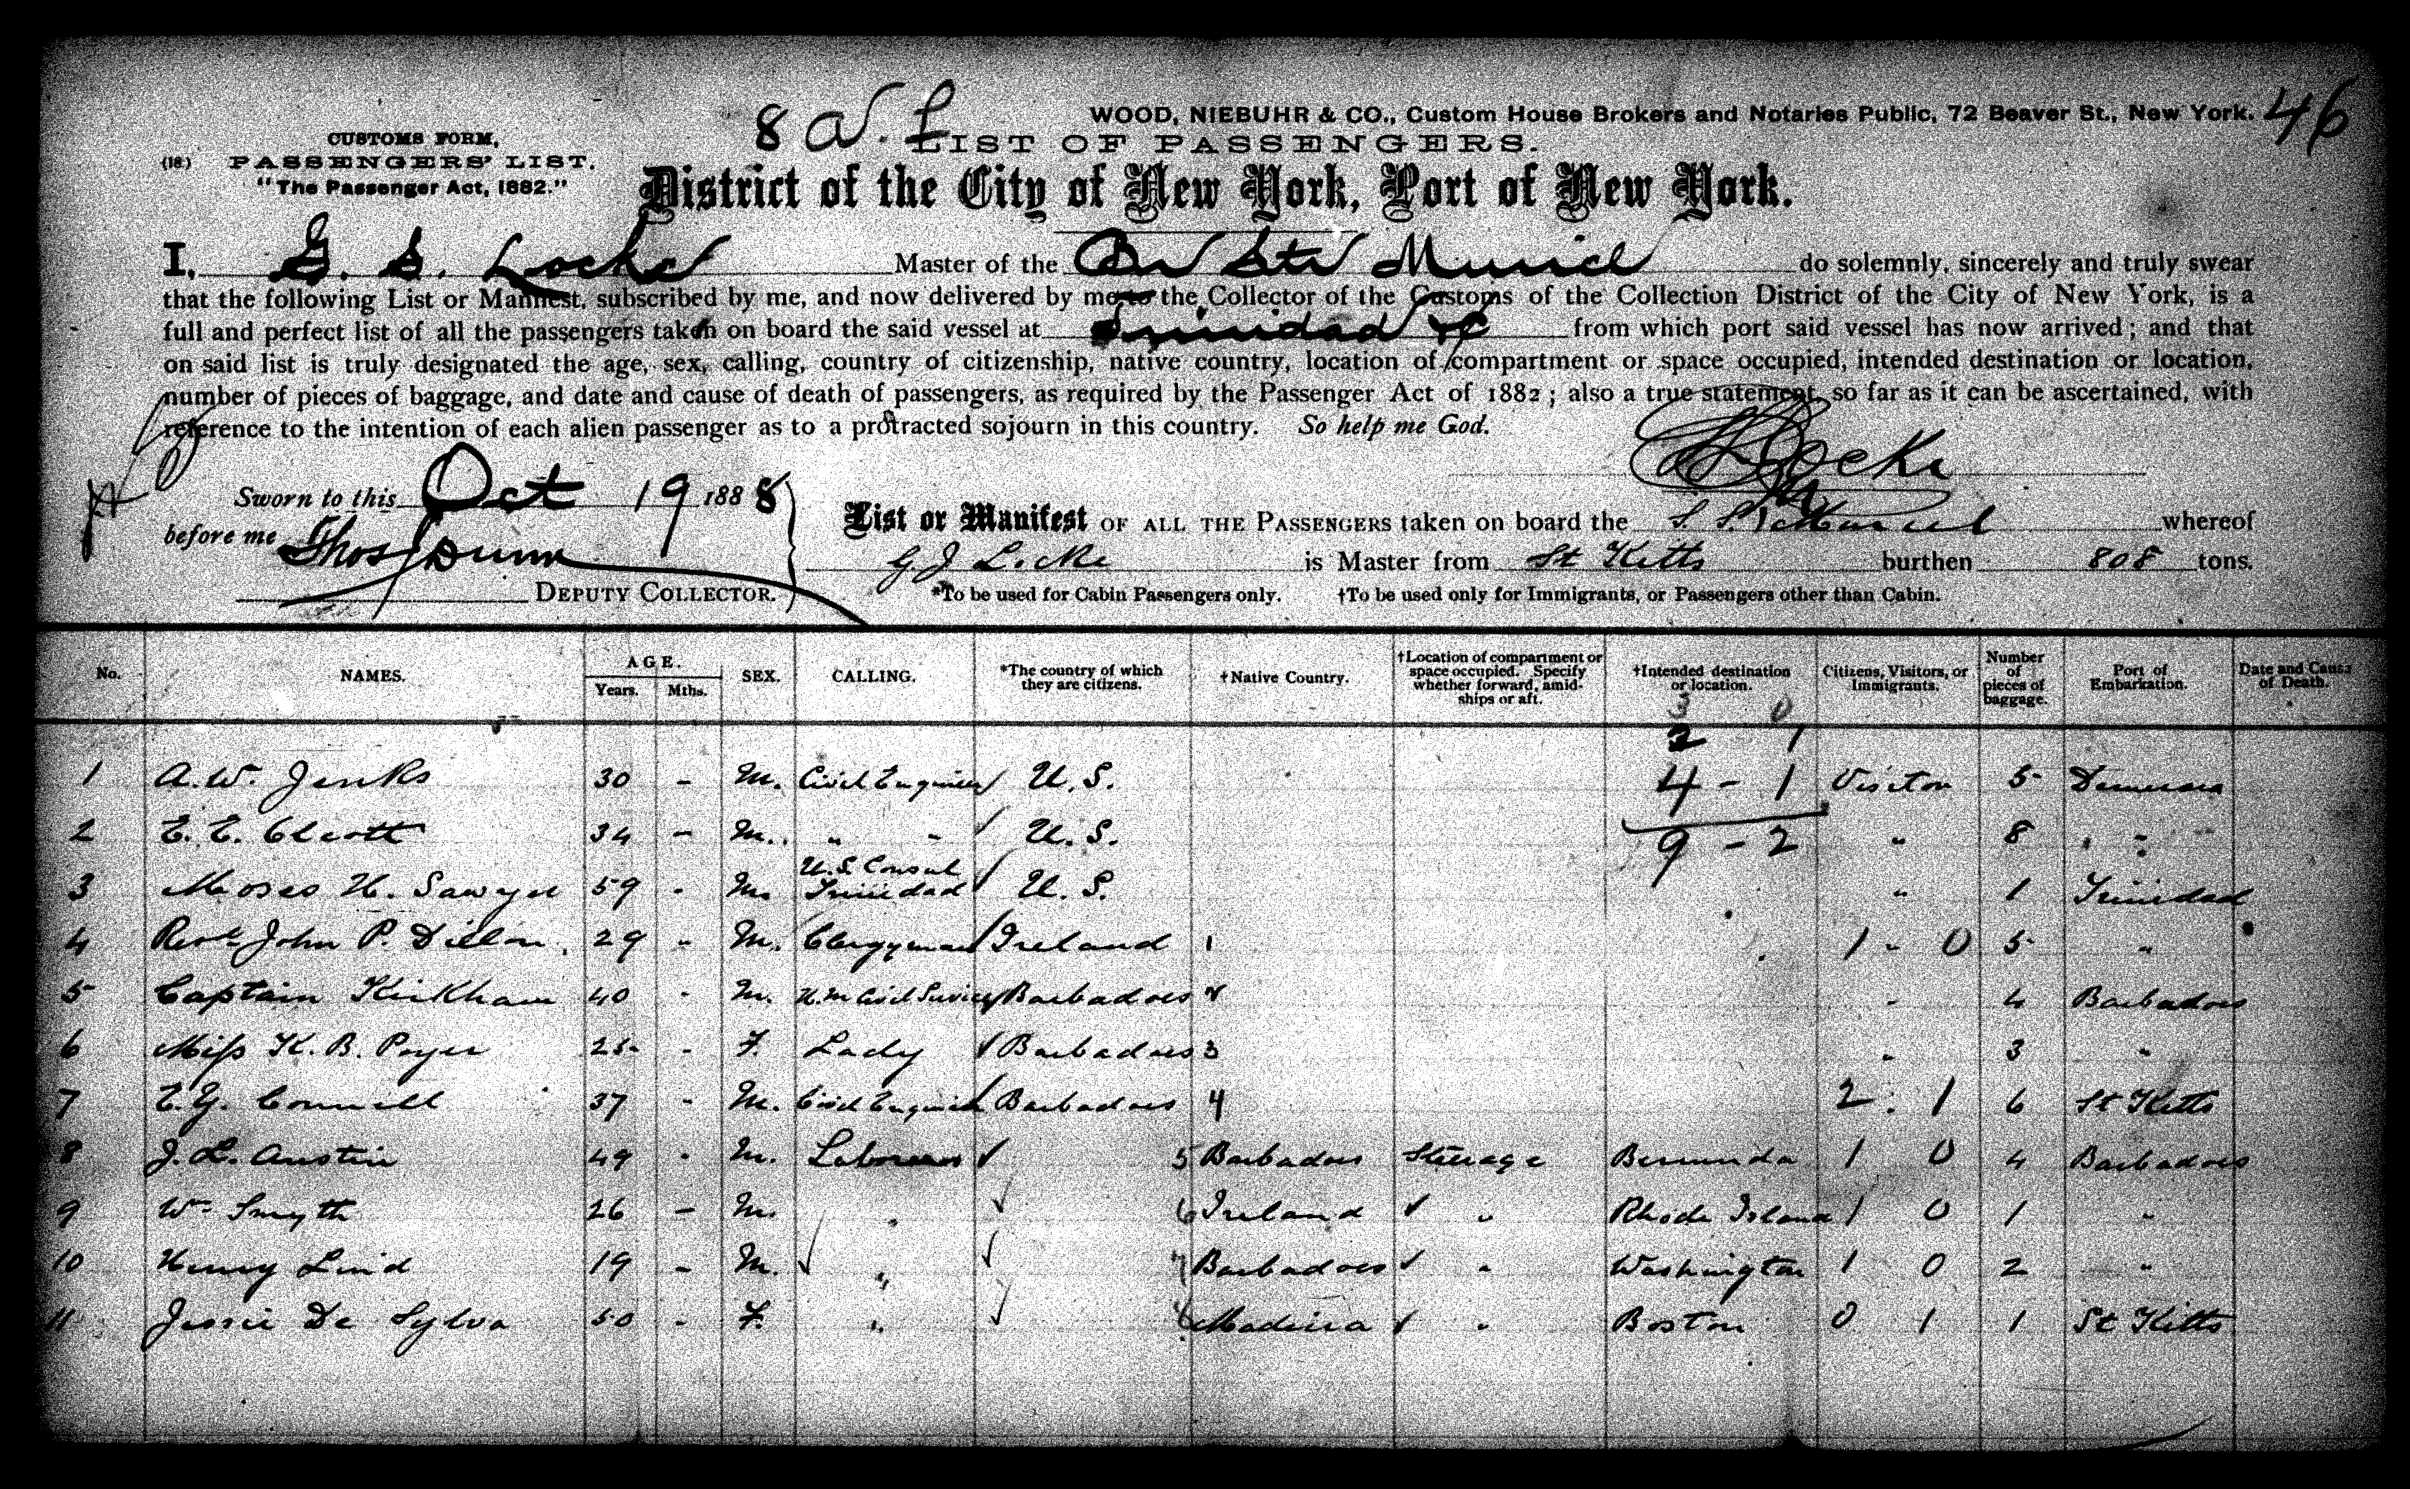 8 a.
WOOD, NIEBUHR & CO., Custom House Brokers and Notaries Public, 72 Beaver St., New York. 46
CUSTOMS FORM,
(18) PASSENGERS' LIST.
"The Passenger Act, 1882."
LIST OF PASSENGERS.
District of the City of New York, Port of New York.
I, G. S. Locke Master of the Br Str Muriel do solemnly, sincerely and truly swear
that the following List or Manifest, subscribed by me, and now delivered by me to the Collector of the Customs of the Collection District of the City of New York, is a
full and perfect list of all the passengers taken on board the said vessel at Trinidad &c from which port said vessel has now arrived; and that
on said list is truly designated the age, sex, calling, country of citizenship, native country, location of compartment or space occupied, intended destination or location,
number of pieces of baggage, and date and cause of death of passengers, as required by the Passenger Act of 1882; also a true statement, so far as it can be ascertained, with
reference to the intention of each alien passenger as to a protracted sojourn in this country. So help me God.
Locke
Sworn to this Oct 19 1888
before me Thos Dunn
DEPUTY COLLECTOR.
List or Manifest OF ALL THE PASSENGERS taken on board the S. S. Muriel whereof
G. J. Locke is Master from St Kitts burthen 808 tons.
*To be used for Cabin Passengers only. †To be used only for Immigrants, or Passengers other than Cabin.
No. NAMES. AGE. Years. Mths. SEX. CALLING. *The country of which they are citizens. †Native Country. †Location of compartment or space occupied. Specify whether forward, amidships or aft. †Intended destination or location. Citizens, Visitors, or Immigrants. Number of pieces of baggage. Port of Embarkation. Date and Cause of Death.
3 0
2 1
1 A. W. Jenks 30 - M. Civil Engineer U. S. 4 - 1 Visitor 5 Demerara
2 E. E. Olcott 34 - M. " " U. S. 9 - 2 " 8 " "
3 Moses H. Sawyer 59 - M. U. S. Consul Trinidad U. S. " 1 Trinidad
4 Revd John P. Dillon 29 - M. Clergyman Ireland 1 1 - 0 5 "
5 Captain Kirkham 40 - M. H. M Civil Service Barbadoes 2 " 4 Barbadoes
6 Miss K. B. Poyer 25 - F. Lady Barbadoes 3 " 3 "
7 E. G. Connell 37 - M. Civil Engineer Barbadoes 4 2 . 1 6 St Kitts
8 J. L. Austin 49 - M. Laborer 5 Barbadoes Steerage Bermuda 1 0 4 Barbadoes
9 Wm Smyth 26 - M. " 6 Ireland " Rhode Island 1 0 1 "
10 Henry Lind 19 - M. " 7 Barbadoes " Washington 1 0 2 "
11 Jessie De Sylva 50 - F. " 8 Madeira " Boston 0 1 1 St Kitts